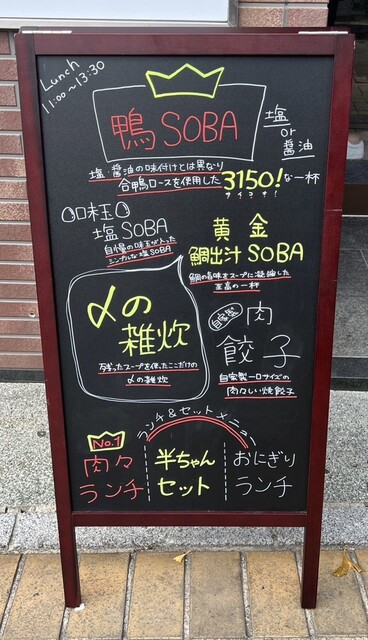 Lunch
11:00〜13:30
鴨SOBA
塩
or
醤油
塩・醤油の味付けとは異なり
合鴨ロースを使用した3150!な一杯
サイコー!
味玉
塩SOBA
自慢の味玉が入った
シンプルな塩SOBA
黄金
鯛出汁SOBA
鯛の旨味をスープに凝縮した
至高の一杯
〆の
雑炊
残ったスープを使ったここだけの
〆の雑炊
自家製
肉
餃子
自家製一口サイズの
肉々しい焼餃子
ランチ&セットメニュー
No.1
肉々
ランチ
半ちゃん
セット
おにぎり
ランチ